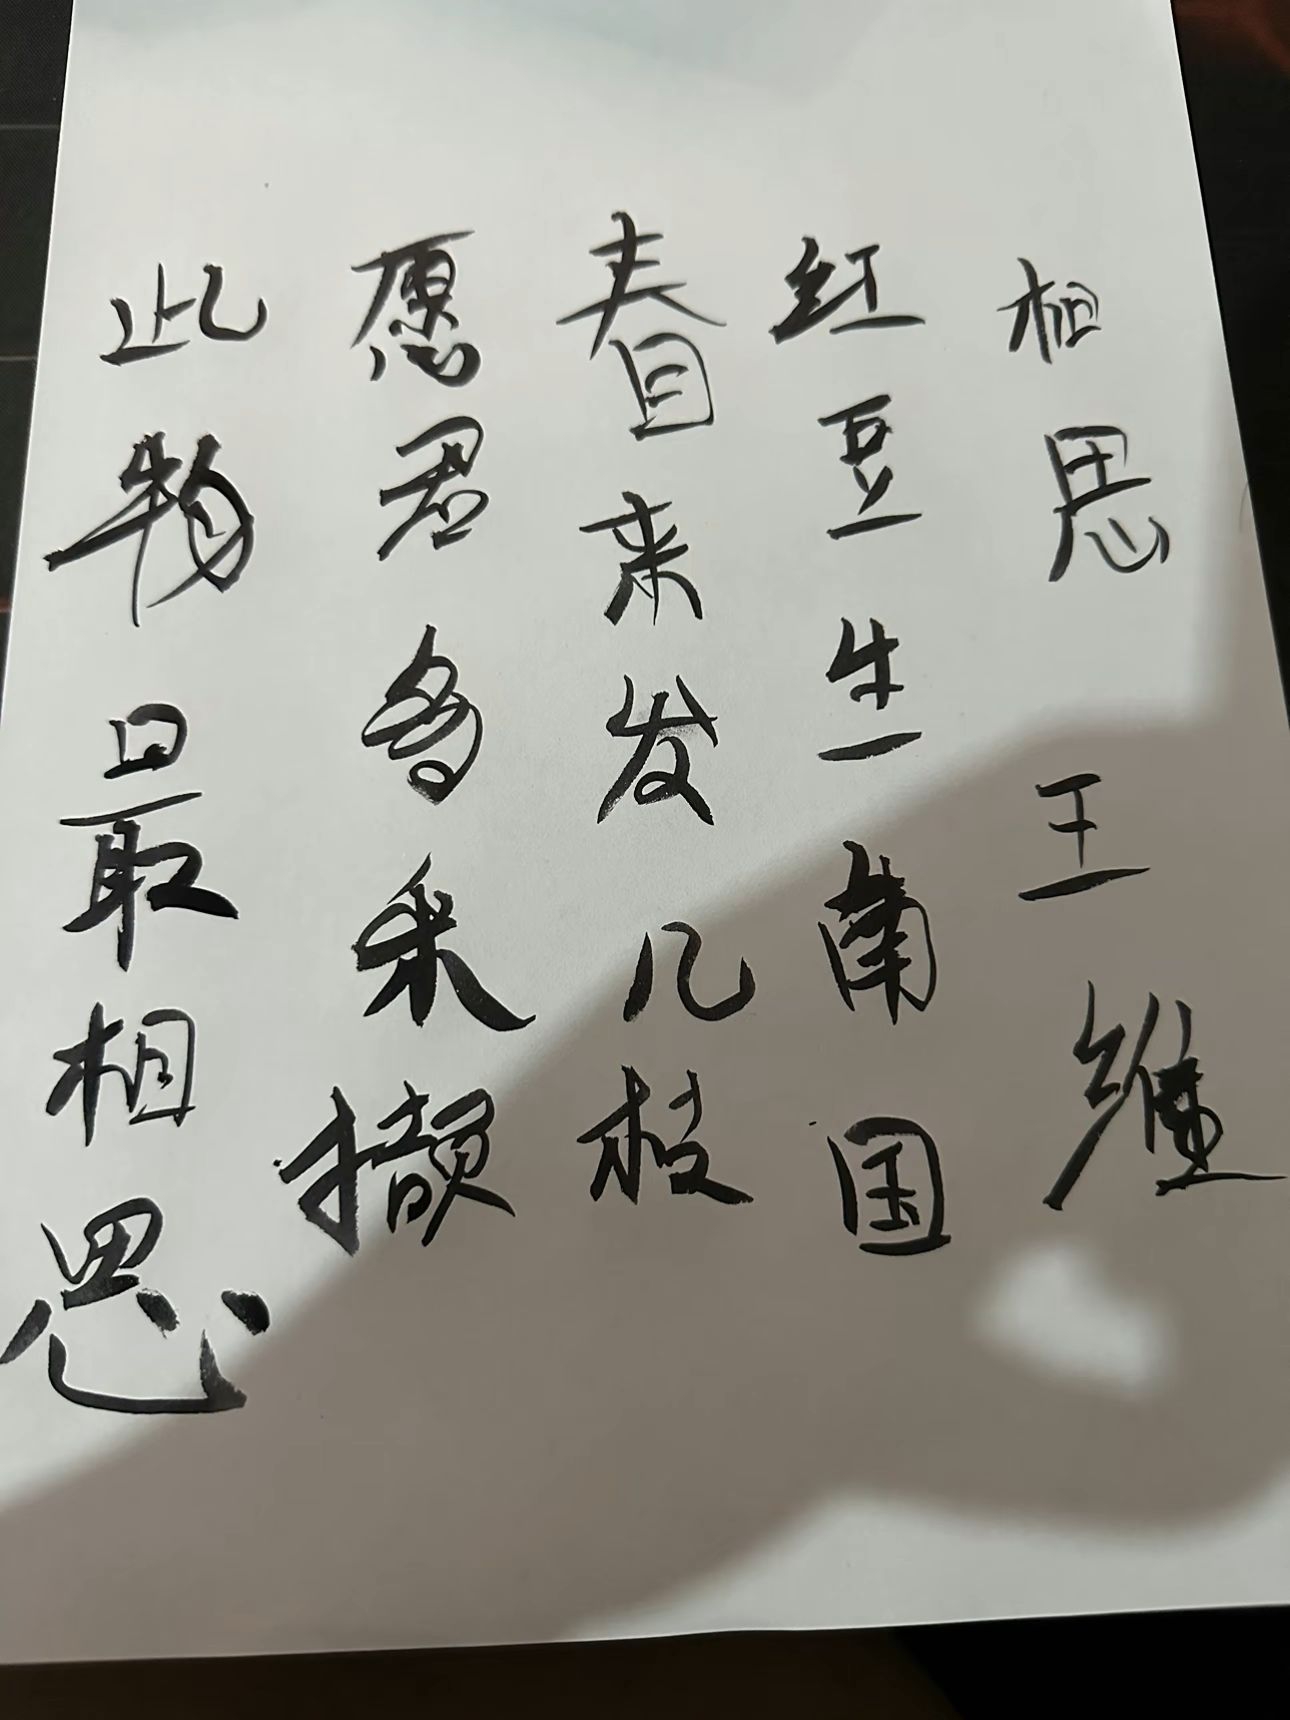 相思 王维
红豆生南国
春来发几枝
愿君多采撷
此物最相思